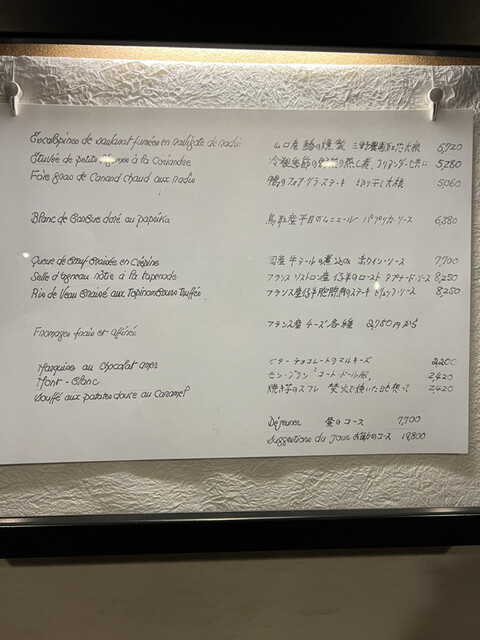 Escalopines de fumées en de radis 山口産 の燻製 三野農園紅芯大根 5,720
Etuvée de petits à la Coriandre 冷製 の蒸し煮、コリアンダー 5,280
Foie gras de Canard chaud aux radis 鴨のフォアグラステーキ 切り干し大根 5,060
Blanc de Barbue doré au paprika 鳥取産平目のムニエル パプリカソース 6,380
Queue de Bœuf Braisée en Crépine 国産牛テールの煮込み 赤ワインソース 7,700
Selle d'agneau rôtie à la tapenade フランス シストロン産仔羊のロースト タプナードソース 8,250
Ris de Veau Braisé aux Topinambours Truffés フランス産仔牛胸腺肉のステーキ トリュフソース 8,250
Fromages frais et affinés フランス産チーズ各種 2,750円から
Marquise au Chocolat amer ビターチョコレートのマルキーズ 2,200
Mont-Blanc モンブラン “コートドール風” 2,420
Soufflé aux patates douce au Caramel 焼き芋のスフレ 焚火で焼いた日を想って 2,420
Déjeuner 昼のコース 7,700
Suggestions du Jour お勧めコース 19,800